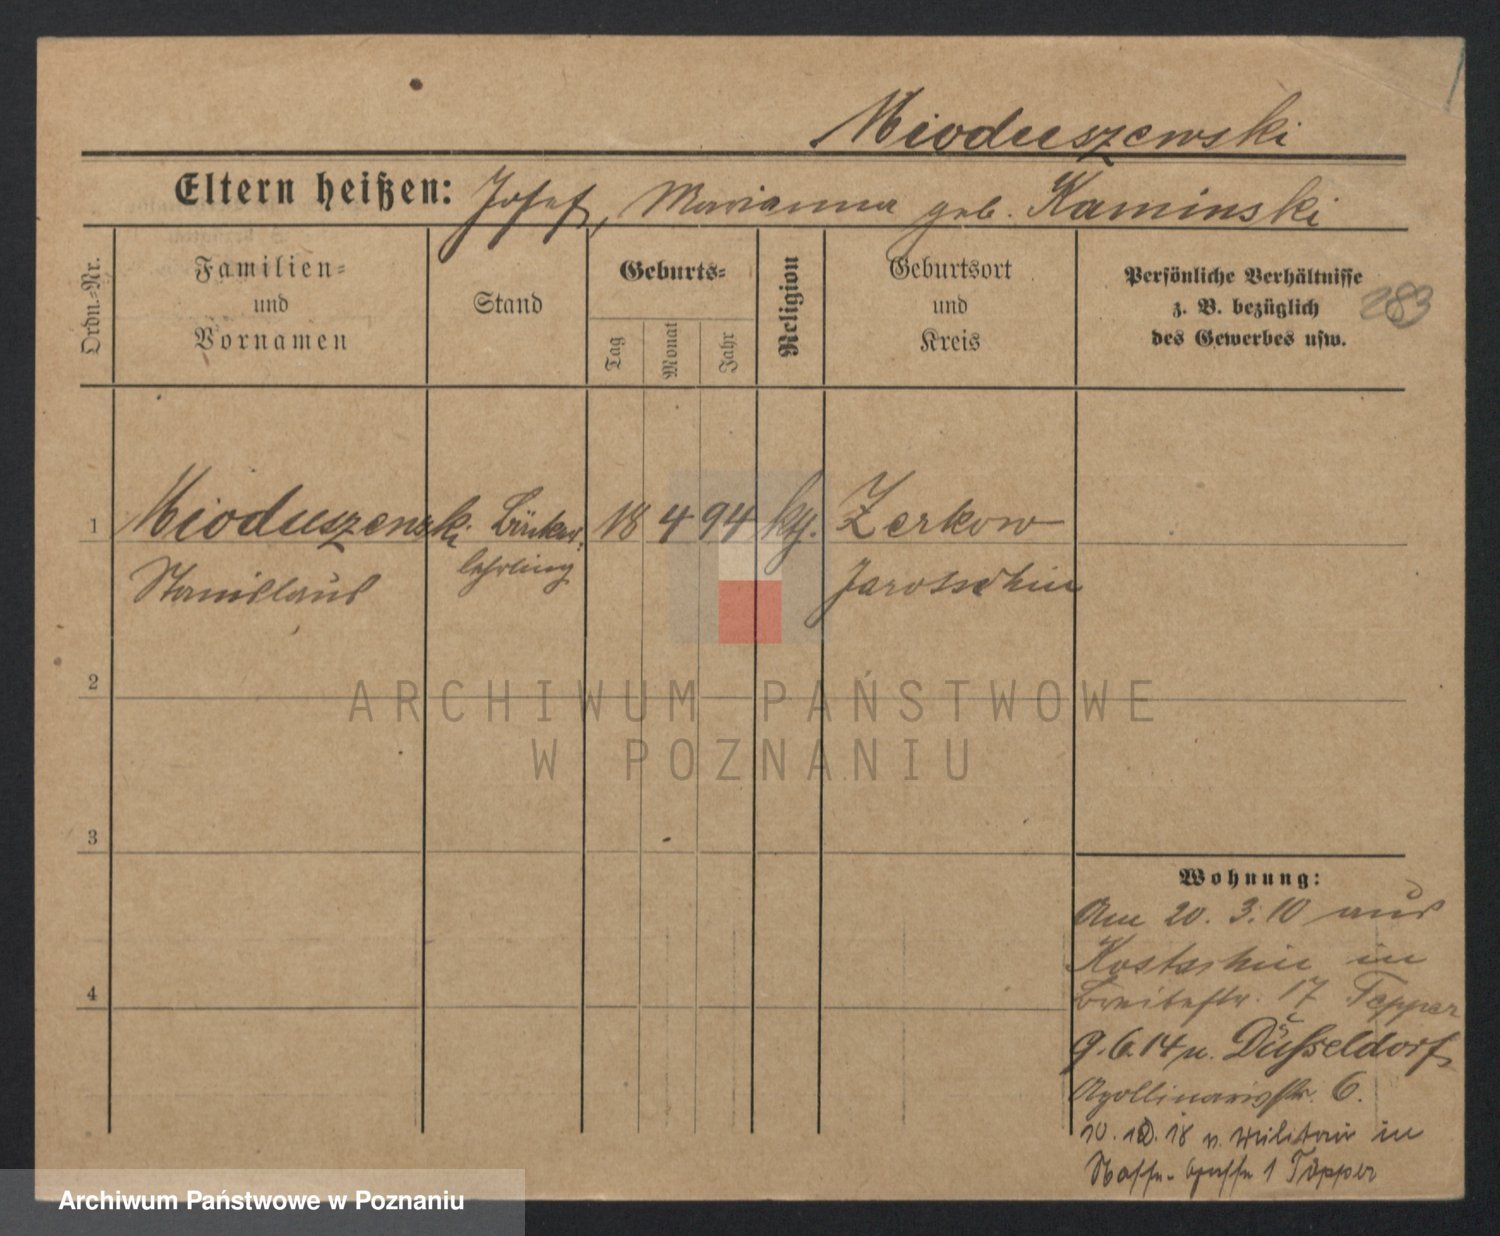 Mioduszewski
Eltern heißen: Josef, Marianna geb. Kaminski
Ordn.-Nr.
Familien-
und
Vornamen
Stand
Geburts-
Tag
Monat
Jahr
Religion
Geburtsort
und
Kreis
Persönliche Verhältnisse
z. B. bezüglich
des Gewerbes usw.
283
1 Mioduszewski Bäcker- 18 4 94 kth. Zerkow
Stanislaus lehrling Jarotschin
2
ARCHIWUM PAŃSTWOWE
W POZNANIU
3
4
Wohnung:
Am 20. 3. 10 aus
Kostschin in
Breitestr. 17 Tepper
9. 6. 14 n. Düsseldorf
Apollinarisstr. 6.
10. 12. 18 v. Militair in
1 Töpper
Archiwum Państwowe w Poznaniu